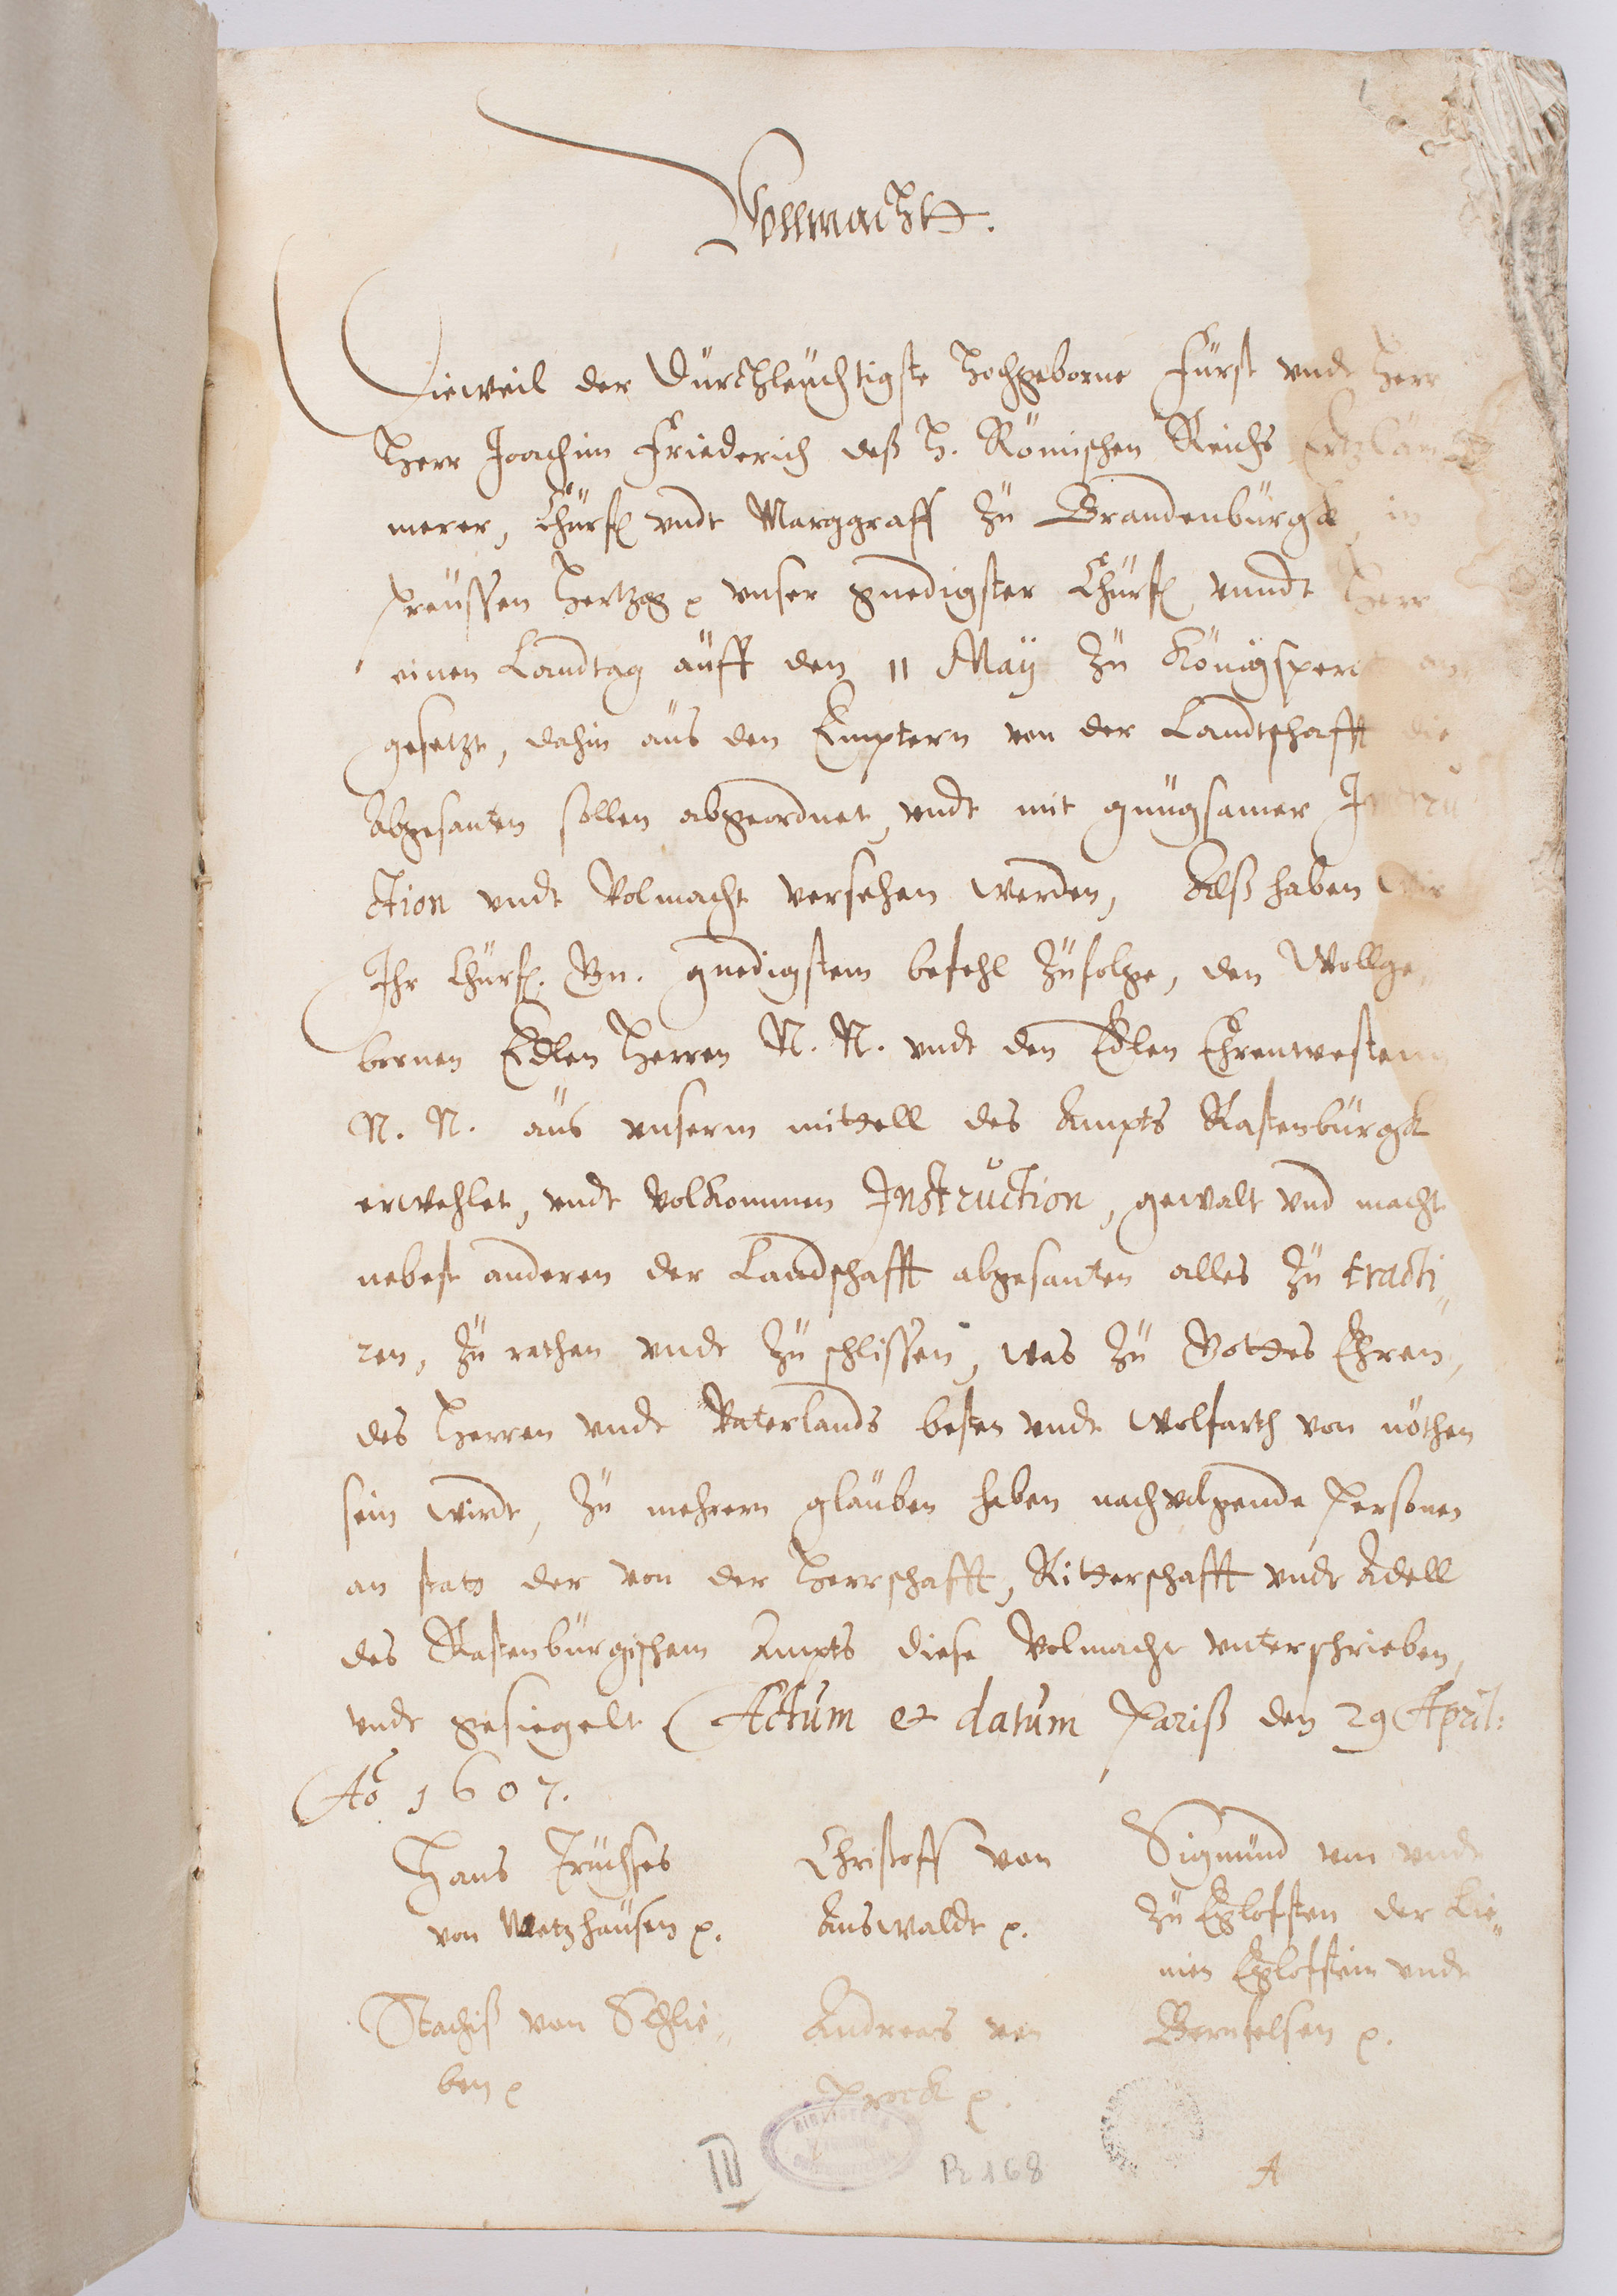 Vollmachtt.
Dieweil der Dürchleüchtigste Hochgeborne Fürst vndt Herr
Herr Joachim Friederich deß H. Römischen Reichs Ertzkäm
merer, Chürf vndt Marggraff Zü Brandenbürgk, in
Preüssen Hertzog p vnser gnedigster Chürf vnndt Herr
einen Landtag aüff den 11 Maÿ Zü Königsperg an
gesetzt, dahin aüs den Emptern von der Landtschafft die
Abgesanten sollen abgeordnet, vndt mit gnügsamer Instrü
ction vndt Volmacht versehen werden, Alß haben Wir
Ihr Chürf. Gn. gnedigstem befehl Zü folge, den Wollge„
bornen Edlen Herren N. N. vndt den Edlen Ehrenvesten
N. N. aüs vnserm mittell des Ampts Rastenbürgk
erwehlet, vndt Volkommen Instrüction, gewalt vnd macht
nebest anderen der Landschafft abgesanten alles Zü tracti„
ren, Zü rathen vndt Zü schlissen, was Zü Gottes Ehren,
des Herren vndt Vaterlands besten vndt wolfarth von nöthen
sein wirdt, Zü mehrern glaüben haben nachvolgende Personen
an stats der von der Herrschafft, Ritterschafft vndt Adell
des Rastenbürgischem Ampts diese Volmacht vnterschrieben,
vndt gesiegelt Actüm et datüm Pariß den 29 April:
Ao 1607.
Hans Trüchses
von Wetzhaüsen p.
Christoff von
Aüswaldt p.
Sigmünd von vndt
Zü Eglofsten der Lie„
nien Eglofstein vndt
Bernfelsen p.
Stachiß von Schlie„
ben p
Andreas von
Prock p.
III
Pr 168
A